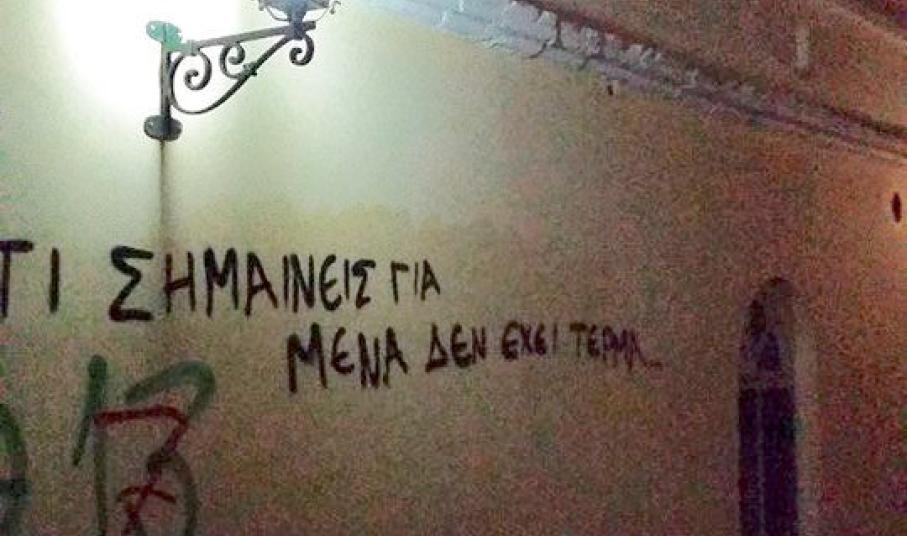 ΤΙ ΣΗΜΑΙΝΕΙΣ ΓΙΑ
ΜΕΝΑ ΔΕΝ ΕΧΕΙ ΤΕΡΜΑ...
13